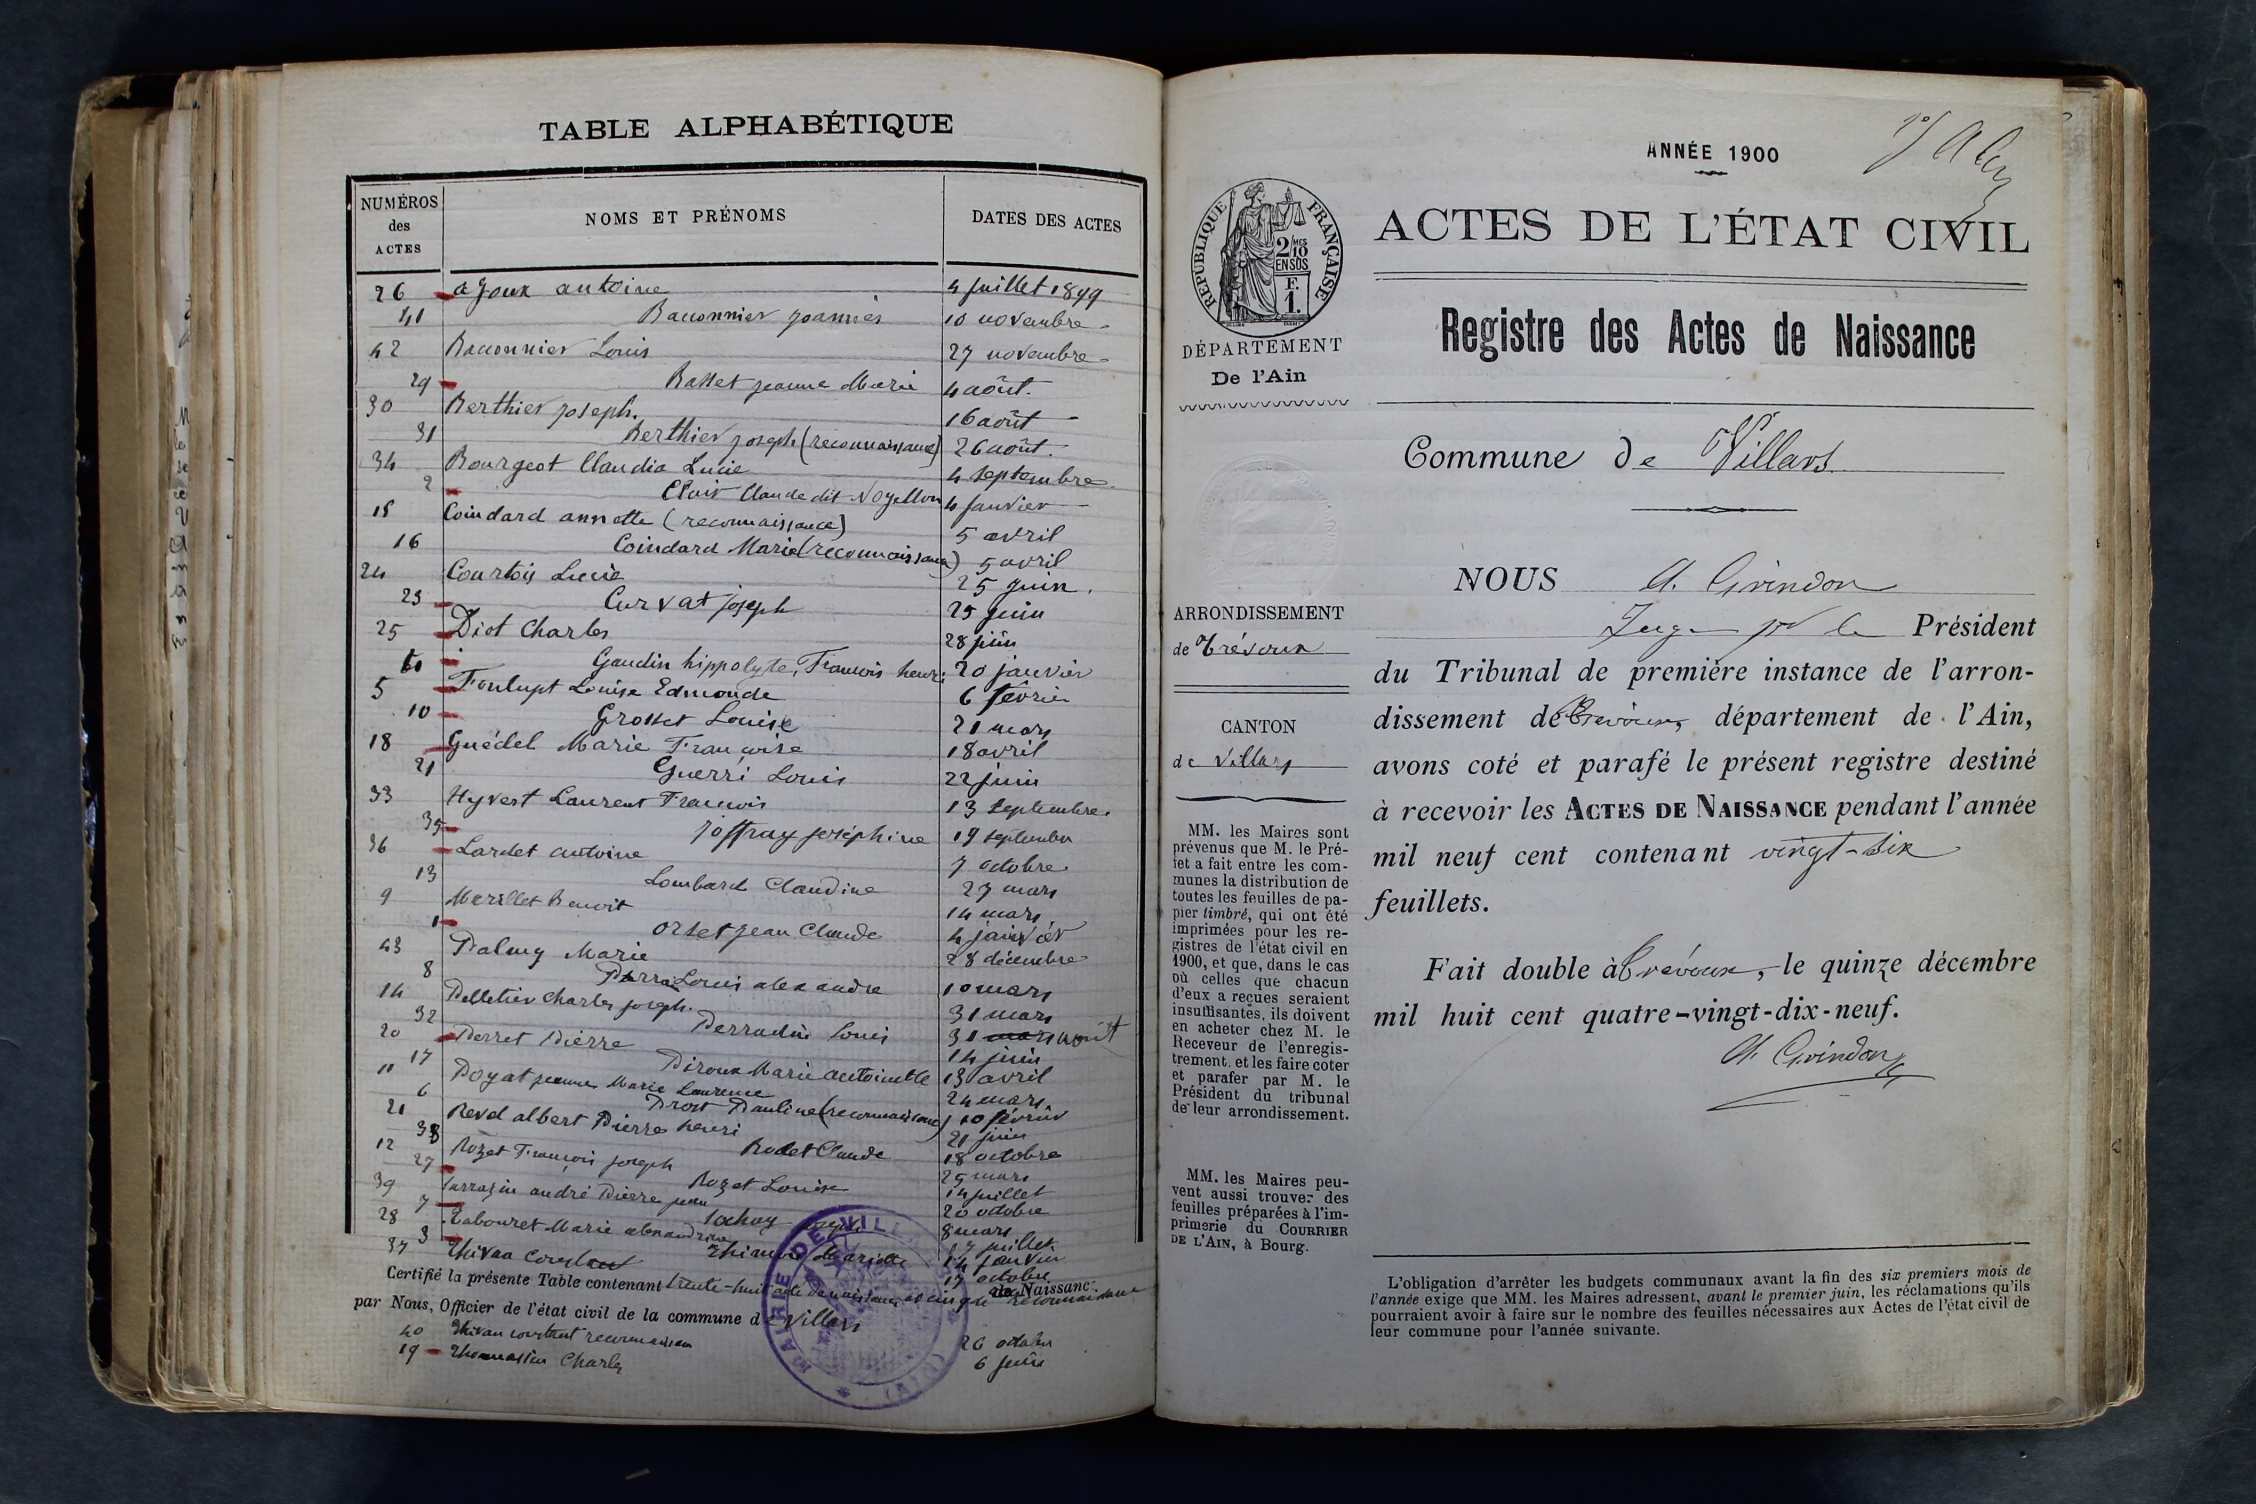 TABLE ALPHABÉTIQUE
NUMÉROS des ACTES NOMS ET PRÉNOMS DATES DES ACTES
26 ajoux antoine 4 juillet 1899
41 Baconnier joannès 10 novembre
42 Baconnier Louis 27 novembre
29 Basset jeanne Marie 4 août
30 Berthier joseph 16 août
31 Berthier joseph (reconnaissance) 26 août
34 Bourgeot Claudia Lucie 4 septembre
2 Clair Claude dit Noyellon 4 janvier
15 Coindard annette (reconnaissance) 5 avril
16 Coindard Marie (reconnaissance) 5 avril
24 Courtois Lucie 25 juin
23 Curvat joseph 25 juin
25 Diot Charles 28 juin
Gaudin hippolyte, François henri 20 janvier
5 Foulupt Louise Edmonde 6 février
10 Grosset Louise 21 mars
18 Guédel Marie Françoise 18 avril
21 Guerri Louis 22 juin
33 Hyvert Laurent François 13 septembre
35 joffray joséphine 19 septembre
36 Lardet antoine 7 octobre
13 Lombard Claudine 27 mars
9 Merillet Benoit 14 mars
1 Orset jean Claude 4 janvier
43 Palmy Marie 28 décembre
8 Louis alexandre 10 mars
14 Pelletier Charles joseph 31 mars
32 Perradin Louis 31 mars août
20 Perret Pierre 14 juin
17 Piroux Marie antoinette 13 avril
11 Poyat jeanne Marie Laurence 24 mars
6 Prost Pauline (reconnaissance) 10 février
21 Revel albert Pierre henri 21 juin
38 Rodet Claude 18 octobre
12 Rozet François joseph 25 mars
27 Rozet Louise 14 juillet
39 Sarrazin andré Pierre jean 20 octobre
7 8 mars
28 Tabouret Marie alexandrine 17 juillet
3 14 janvier
37 Thivan Constant 17 octobre
Certifié la présente Table contenant trente-huit acte de naissances et cinq de reconnaissance de Naissance
par Nous, Officier de l'état civil de la commune de Villars
40 Thivan constant reconnaissance 26 octobre
19 Thomassin Charles 6 juin
MAIRIE DE VILLARS (AIN)
ANNÉE 1900
RÉPUBLIQUE FRANÇAISE
2/10 MES EN SUS
F. 1.
ACTES DE L'ÉTAT CIVIL
Registre des Actes de Naissance
DÉPARTEMENT
De l'Ain
Commune de Villars
NOUS A. Grindon
Juge pr le Président
du Tribunal de première instance de l'arron-
dissement de Trévoux, département de l'Ain,
avons coté et parafé le présent registre destiné
à recevoir les ACTES DE NAISSANCE pendant l'année
mil neuf cent contenant vingt-six
feuillets.
Fait double à Trévoux, le quinze décembre
mil huit cent quatre-vingt-dix-neuf.
A. Grindon
ARRONDISSEMENT
de Trévoux
CANTON
de Villars
MM. les Maires sont
prévenus que M. le Pré-
fet a fait entre les com-
munes la distribution de
toutes les feuilles de pa-
pier timbré, qui ont été
imprimées pour les re-
gistres de l'état civil en
1900, et que, dans le cas
où celles que chacun
d'eux a reçues seraient
insuffisantes, ils doivent
en acheter chez M. le
Receveur de l'enregis-
trement, et les faire coter
et parafer par M. le
Président du tribunal
de leur arrondissement.
MM. les Maires peu-
vent aussi trouver des
feuilles préparées à l'im-
primerie du COURRIER
DE L'AIN, à Bourg.
L'obligation d'arrêter les budgets communaux avant la fin des six premiers mois de
l'année exige que MM. les Maires adressent, avant le premier juin, les réclamations qu'ils
pourraient avoir à faire sur le nombre des feuilles nécessaires aux Actes de l'état civil de
leur commune pour l'année suivante.